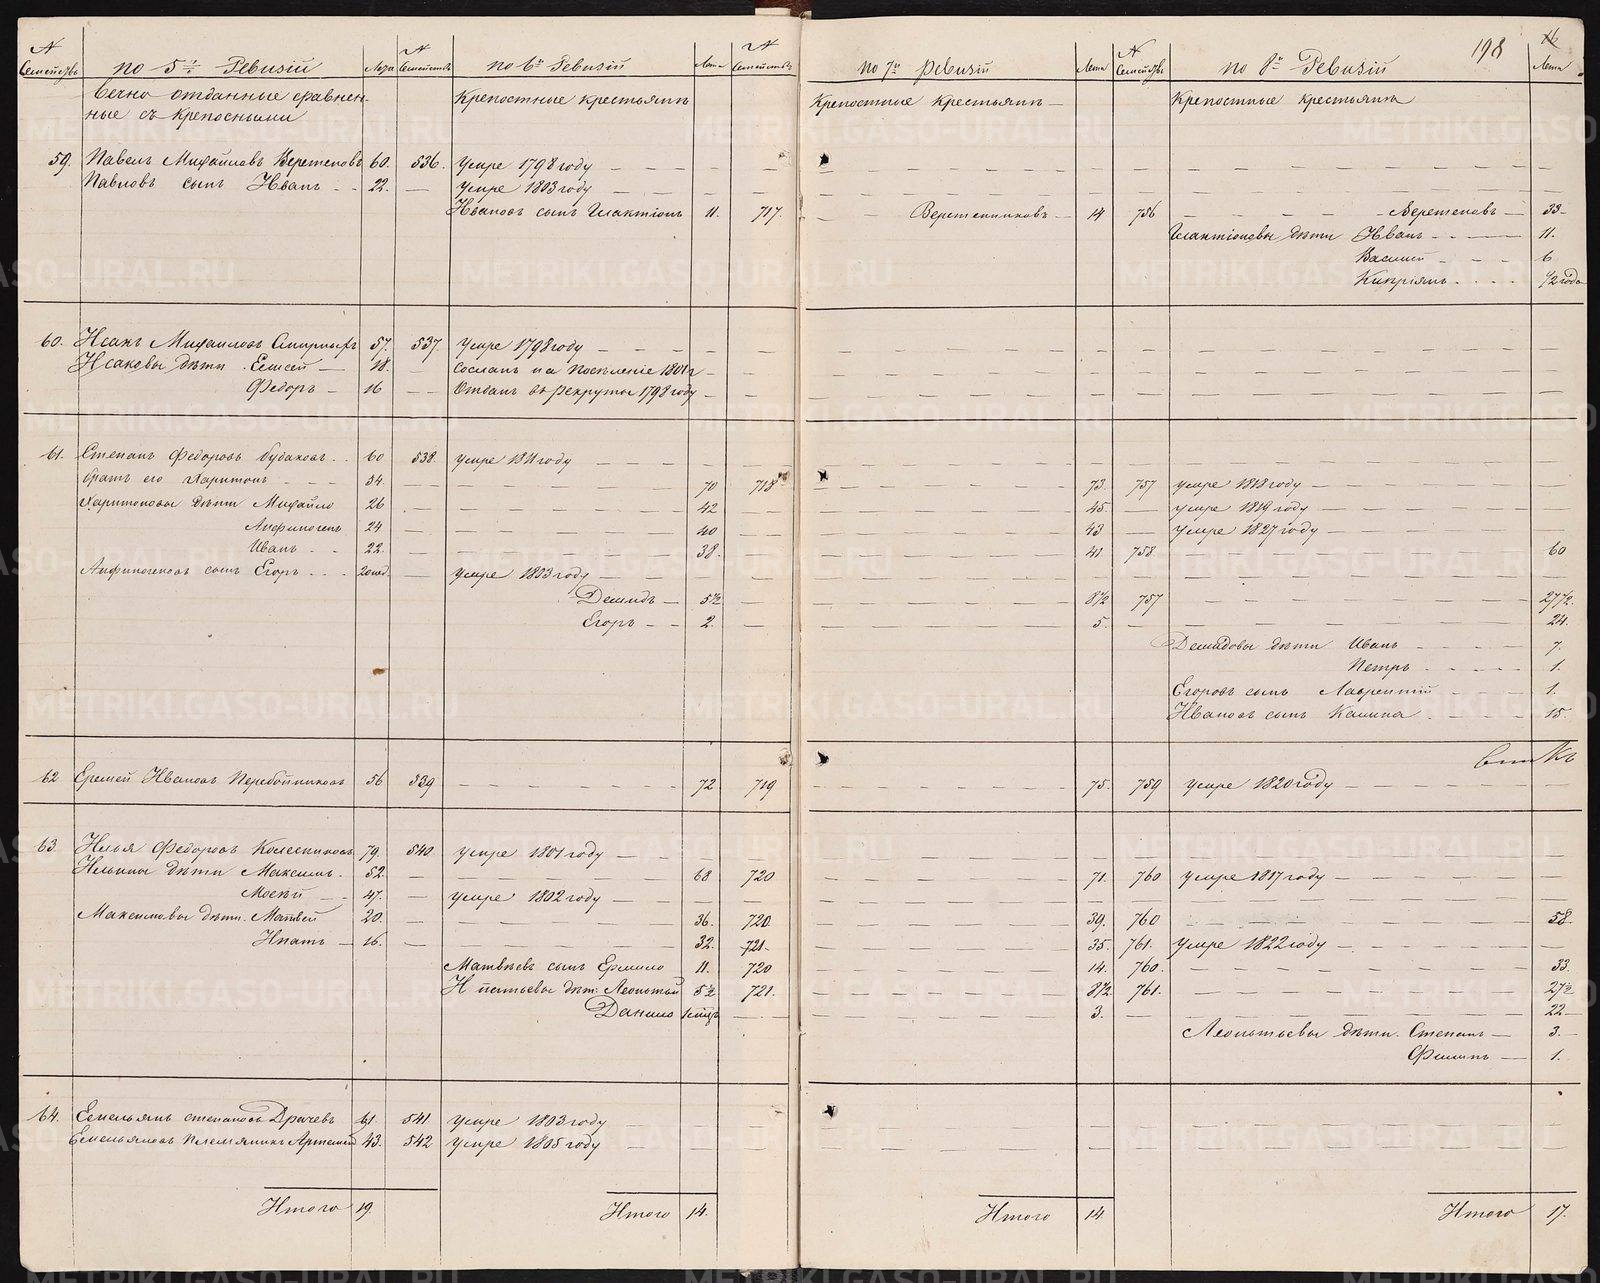 № Семействъ | по 5й Ревизіи | Лѣта | № Семействъ | по 6й Ревизіи | Лѣта | № Семействъ | по 7й Ревизіи | Лѣта | № Семействъ | по 8й Ревизіи | 198 | 16 Лѣта
Вечно отданные сравнен- | Крепостные крестьянъ | Крепостные крестьянъ — | Крепостные крестьянъ
ные съ крепосными
59. Павелъ Михайловъ Веретеновъ 60. 536. Умре 1798 году — — — —
Павловъ сынъ Иванъ - - 22. — Умре 1803 году — — — —
Ивановъ сынъ Галактіонъ 11. 717. — — Веретенниковъ — 14 756 — — — — Веретеновъ — 33
Галактіоновы дѣти Иванъ - - — 11.
Василій - - - 6
Кипріянъ - - - - 1/2 года
60. Исакъ Михаиловъ Смирныхъ 57. 537. Умре 1798 году — — — —
Исаковы дѣти. Елисей — 18. — Сосланъ на поселеніе 1801 г —
Федоръ - 16 — — Отданъ въ рекруты 1798 году —
61. Степанъ Федоровъ Будаковъ. . 60 538. Умре 1811 году — — — —
братъ его Харитонъ - - - 54. — — — 70 718 — — — 73. 757 Умре 1818 году — — —
Харитоновы дѣти Михайло 26 — — — 42 — — — 45. — Умре 1819 году — — —
Анфиногенъ 24 — — — 40 — — — 43 — Умре 1827 году — — —
Иванъ - - 22. — — — 38. — — — 41 758. — — — 60
Анфиногеновъ сынъ Егоръ. . . 20 нед. — Умре 1803 году — — —
Демидъ — 5 1/2 — — — 8 1/2 757 — — — 27 1/2.
Егоръ - - 2. — — — 5. — — — 24.
Демидовы дѣти Иванъ - - - - 7.
Петръ - - - - 1.
Егоровъ сынъ Лаврентій - - - 1.
Ивановъ сынъ Калина - - - 15.
62 Еремей Ивановъ Перебойниковъ 56 539 — — — 72 719 — — — 75. 759 Умре 1820 году — — —
63. Илья Федоровъ Колесниковъ 79. 540. Умре 1801 году — — — —
Ильины дѣти Максимъ. 52. — — — 68 720 — — — 71. 760 Умре 1817 году — — —
Мосѣй - - 47. — Умре 1802 году — — —
Максимовы дѣти. Матвей 20. — — — 36. 720. — — — 39. 760 — — — 58.
Ипатъ — 16. — — — 32. 721. — — — 35. 761. Умре 1822 году — — —
Матвѣевъ сынъ Ермило 11. 720 — — — 14. 760. — — — 33.
Ипатьевы дѣт: Леонтій 5 1/2 721. — — — 8 1/2 761. — — — 27 1/2
Данило — — — 3. — — — 22
Леонтьевы дѣти. Степанъ — 3.
Филипъ — 1.
64. Емельянъ степановъ Драчевъ 61. 541 Умре 1803 году — — —
Емельяновъ племянникъ Артемій 43. 542 Умре 1805 году — — —
Итого 19. | Итого 14. | Итого 14. | Итого 17.
METRIKI.GASO-URAL.RU